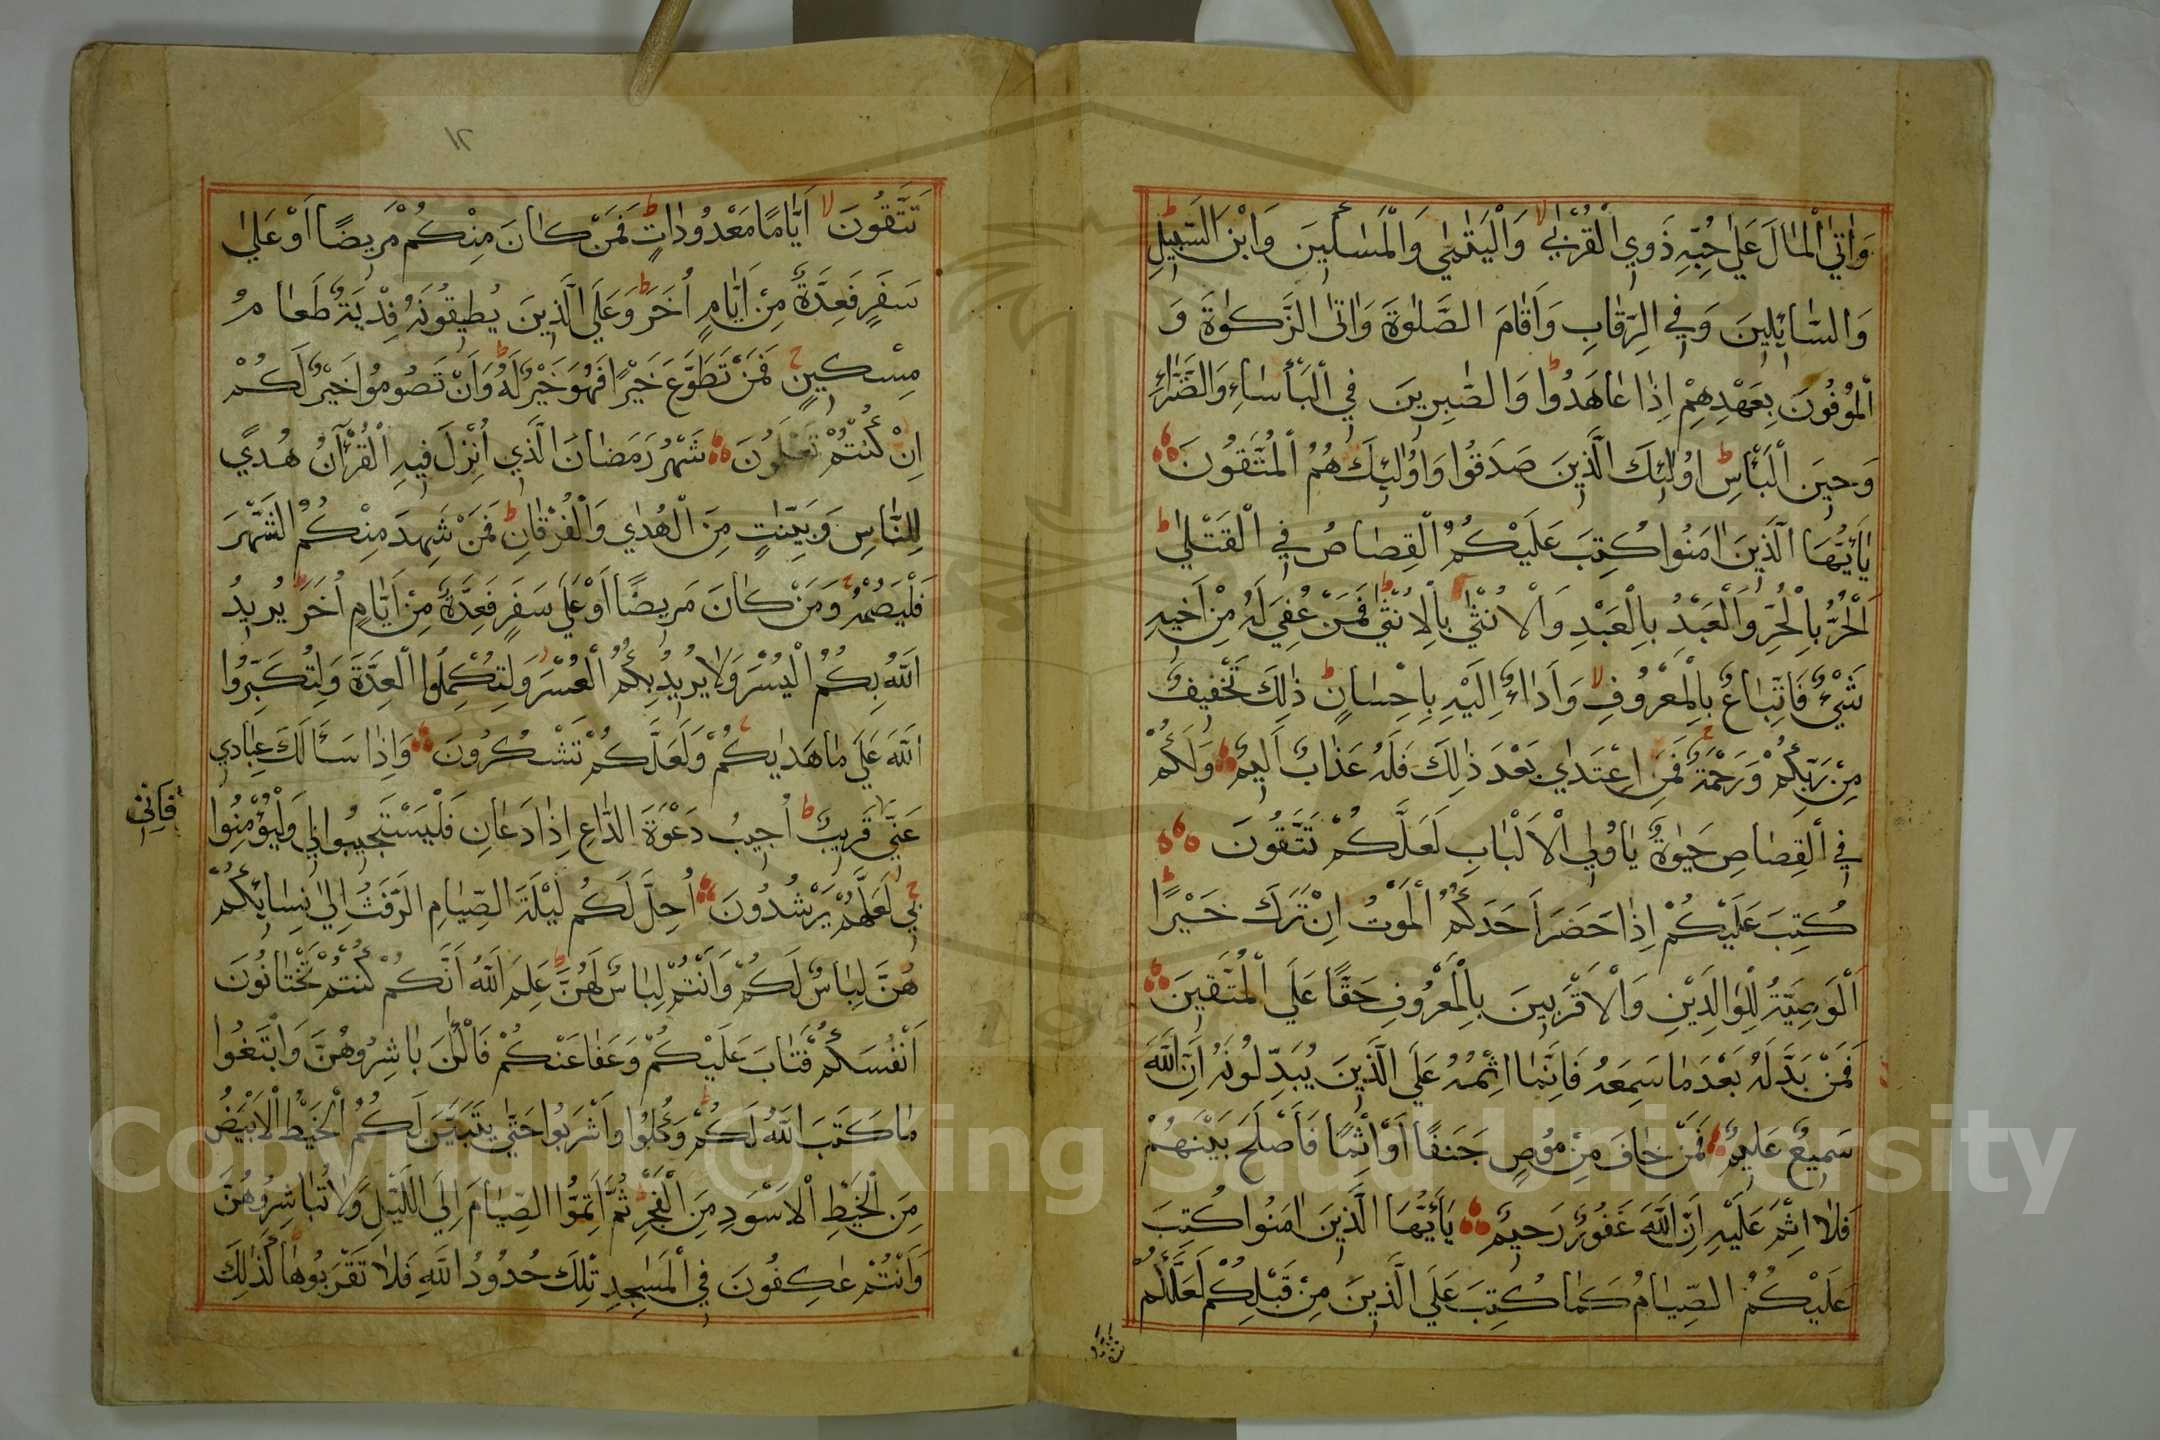 وَاٰتَي الْمَالَ عَلٰي حُبِّهٖ ذَوِي الْقُرْبٰي وَالْيَتٰمٰي وَالْمَسٰكِيْنَ وَابْنَ السَّبِيْلِ
وَالسَّائِلِيْنَ وَفِي الرِّقَابِ وَاَقَامَ الصَّلٰوةَ وَاٰتَى الزَّكٰوةَ وَ
الْمُوْفُوْنَ بِعَهْدِهِمْ اِذَا عَاهَدُوْا وَالصّٰبِرِيْنَ فِي الْبَأْسَاءِ وَالضَّرَّاءِ
وَحِيْنَ الْبَأْسِ اُولٰئِكَ الَّذِيْنَ صَدَقُوْا وَاُولٰئِكَ هُمُ الْمُتَّقُوْنَ
يٰاَيُّهَا الَّذِيْنَ اٰمَنُوْا كُتِبَ عَلَيْكُمُ الْقِصَاصُ فِي الْقَتْلٰي
اَلْحُرُّ بِالْحُرِّ وَالْعَبْدُ بِالْعَبْدِ وَالْاُنْثٰي بِالْاُنْثٰي فَمَنْ عُفِيَ لَهٗ مِنْ اَخِيْهِ
شَيْءٌ فَاتِّبَاعٌ بِالْمَعْرُوْفِ وَاَدَاءٌ اِلَيْهِ بِاِحْسَانٍ ذٰلِكَ تَخْفِيْفٌ
مِنْ رَبِّكُمْ وَرَحْمَةٌ فَمَنِ اعْتَدٰي بَعْدَ ذٰلِكَ فَلَهٗ عَذَابٌ اَلِيْمٌ وَلَكُمْ
فِي الْقِصَاصِ حَيٰوةٌ يٰاُولِي الْاَلْبَابِ لَعَلَّكُمْ تَتَّقُوْنَ
كُتِبَ عَلَيْكُمْ اِذَا حَضَرَ اَحَدَكُمُ الْمَوْتُ اِنْ تَرَكَ خَيْرًا
اَلْوَصِيَّةُ لِلْوَالِدَيْنِ وَالْاَقْرَبِيْنَ بِالْمَعْرُوْفِ حَقًّا عَلَي الْمُتَّقِيْنَ
فَمَنْ بَدَّلَهٗ بَعْدَ مَا سَمِعَهٗ فَاِنَّمَا اِثْمُهٗ عَلَي الَّذِيْنَ يُبَدِّلُوْنَهٗ اِنَّ اللّٰهَ
سَمِيْعٌ عَلِيْمٌ فَمَنْ خَافَ مِنْ مُوْصٍ جَنَفًا اَوْ اِثْمًا فَاَصْلَحَ بَيْنَهُمْ
فَلَا اِثْمَ عَلَيْهِ اِنَّ اللّٰهَ غَفُوْرٌ رَحِيْمٌ يٰاَيُّهَا الَّذِيْنَ اٰمَنُوْا كُتِبَ
عَلَيْكُمُ الصِّيَامُ كَمَا كُتِبَ عَلَي الَّذِيْنَ مِنْ قَبْلِكُمْ لَعَلَّكُمْ
تتقون
١٢
تَتَّقُوْنَ اَيَّامًا مَعْدُوْدَاتٍ فَمَنْ كَانَ مِنْكُمْ مَرِيْضًا اَوْ عَلٰي
سَفَرٍ فَعِدَّةٌ مِنْ اَيَّامٍ اُخَرَ وَعَلَي الَّذِيْنَ يُطِيْقُوْنَهٗ فِدْيَةٌ طَعَامُ
مِسْكِيْنٍ فَمَنْ تَطَوَّعَ خَيْرًا فَهُوَ خَيْرٌ لَهٗ وَاَنْ تَصُوْمُوْا خَيْرٌ لَكُمْ
اِنْ كُنْتُمْ تَعْلَمُوْنَ شَهْرُ رَمَضَانَ الَّذِي اُنْزِلَ فِيْهِ الْقُرْاٰنُ هُدًي
لِلنَّاسِ وَبَيِّنٰتٍ مِنَ الْهُدٰي وَالْفُرْقَانِ فَمَنْ شَهِدَ مِنْكُمُ الشَّهْرَ
فَلْيَصُمْهُ وَمَنْ كَانَ مَرِيْضًا اَوْ عَلٰي سَفَرٍ فَعِدَّةٌ مِنْ اَيَّامٍ اُخَرَ يُرِيْدُ
اللّٰهُ بِكُمُ الْيُسْرَ وَلَا يُرِيْدُ بِكُمُ الْعُسْرَ وَلِتُكْمِلُوا الْعِدَّةَ وَلِتُكَبِّرُوا
اللّٰهَ عَلٰي مَا هَدٰيكُمْ وَلَعَلَّكُمْ تَشْكُرُوْنَ وَاِذَا سَاَلَكَ عِبَادِي
عَنِّي قَرِيْبٌ اُجِيْبُ دَعْوَةَ الدَّاعِ اِذَا دَعَانِ فَلْيَسْتَجِيْبُوْا لِي وَلْيُؤْمِنُوْا
فَاِنِّي
بِي لَعَلَّهُمْ يَرْشُدُوْنَ اُحِلَّ لَكُمْ لَيْلَةَ الصِّيَامِ الرَّفَثُ اِلٰي نِسَائِكُمْ
هُنَّ لِبَاسٌ لَكُمْ وَاَنْتُمْ لِبَاسٌ لَهُنَّ عَلِمَ اللّٰهُ اَنَّكُمْ كُنْتُمْ تَخْتَانُوْنَ
اَنْفُسَكُمْ فَتَابَ عَلَيْكُمْ وَعَفَا عَنْكُمْ فَالْئٰنَ بَاشِرُوْهُنَّ وَابْتَغُوْا
مَا كَتَبَ اللّٰهُ لَكُمْ وَكُلُوْا وَاشْرَبُوْا حَتّٰي يَتَبَيَّنَ لَكُمُ الْخَيْطُ الْاَبْيَضُ
مِنَ الْخَيْطِ الْاَسْوَدِ مِنَ الْفَجْرِ ثُمَّ اَتِمُّوا الصِّيَامَ اِلَي اللَّيْلِ وَلَا تُبَاشِرُوْهُنَّ
وَاَنْتُمْ عٰكِفُوْنَ فِي الْمَسٰجِدِ تِلْكَ حُدُوْدُ اللّٰهِ فَلَا تَقْرَبُوْهَا كَذٰلِكَ
Copyright © King Saud University